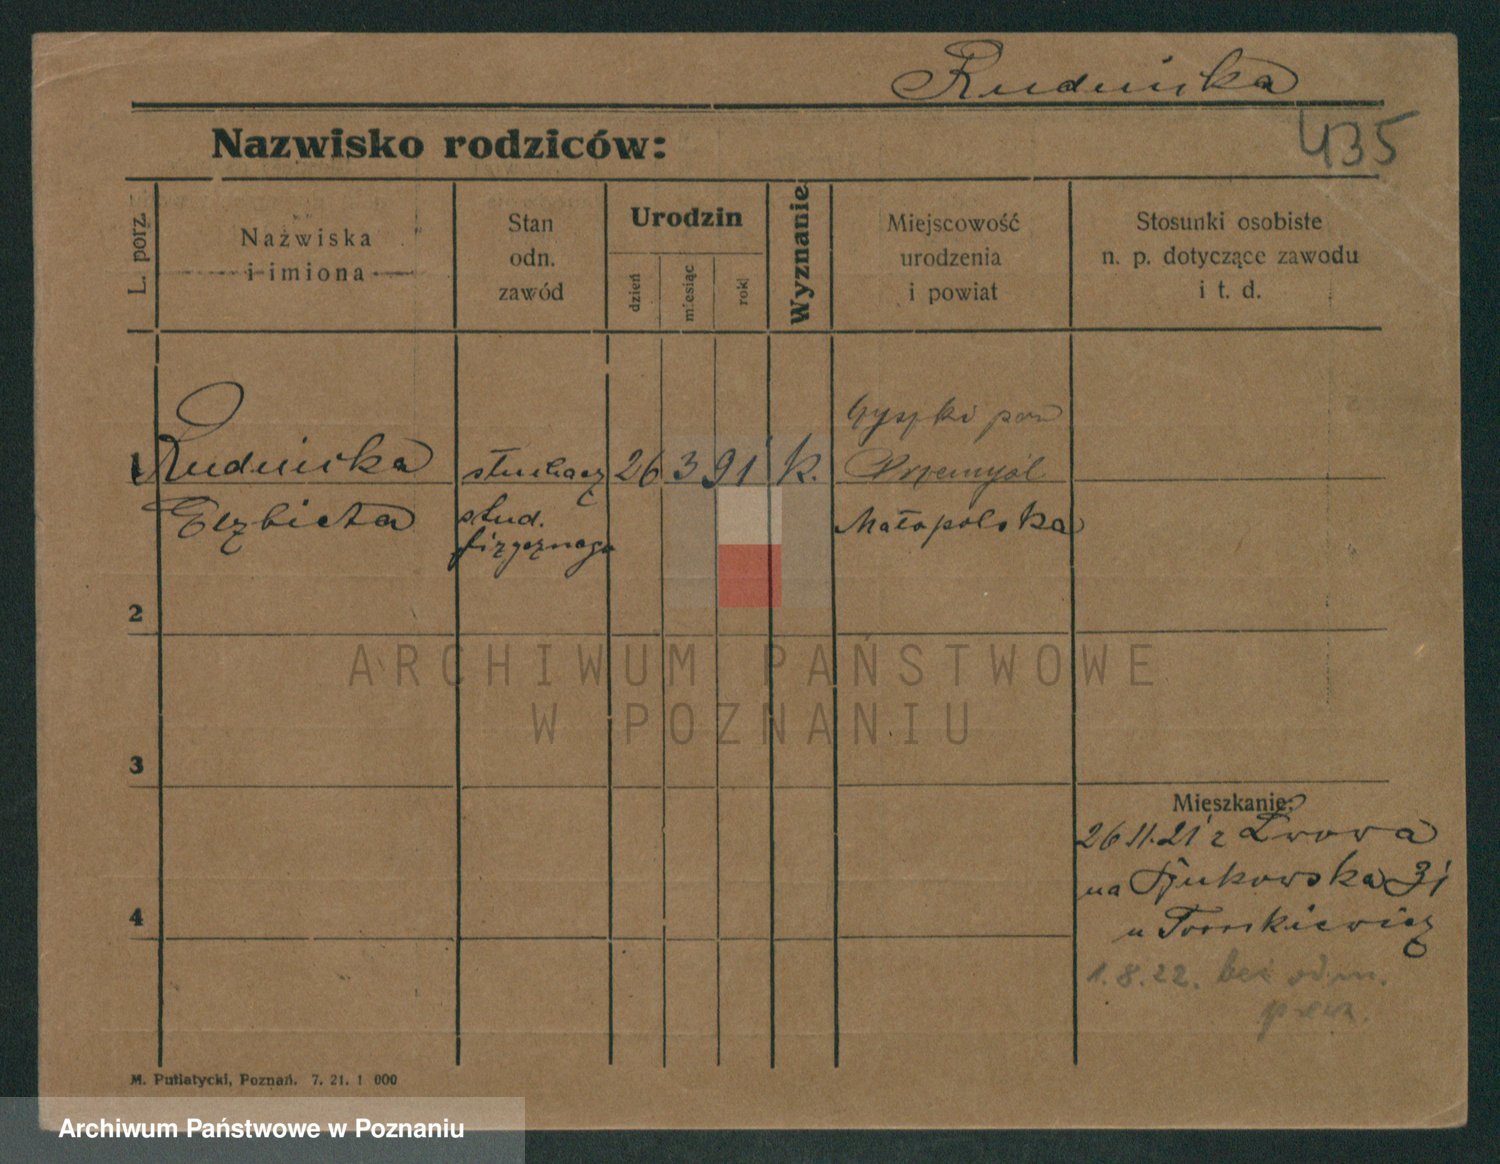 Rudnicka
435
Nazwisko rodziców:
L. porz.
Nazwiska
i imiona
Stan
odn.
zawód
Urodzin
dzień
miesiąc
rok
Wyznanie
Miejscowość
urodzenia
i powiat
Stosunki osobiste
n. p. dotyczące zawodu
i t. d.
1
Rudnicka
Elżbieta
słuchacz
stud.
fizycznego
26 3 91 k.
pow
Przemyśl
Małopolska
2
3
4
Mieszkanie:
26.11.21 z Lwowa
na 31
u Tomkiewicz
1.8.22. bez odm.
M. Putiatycki, Poznań. 7. 21. 1 000
ARCHIWUM PAŃSTWOWE
W POZNANIU
Archiwum Państwowe w Poznaniu